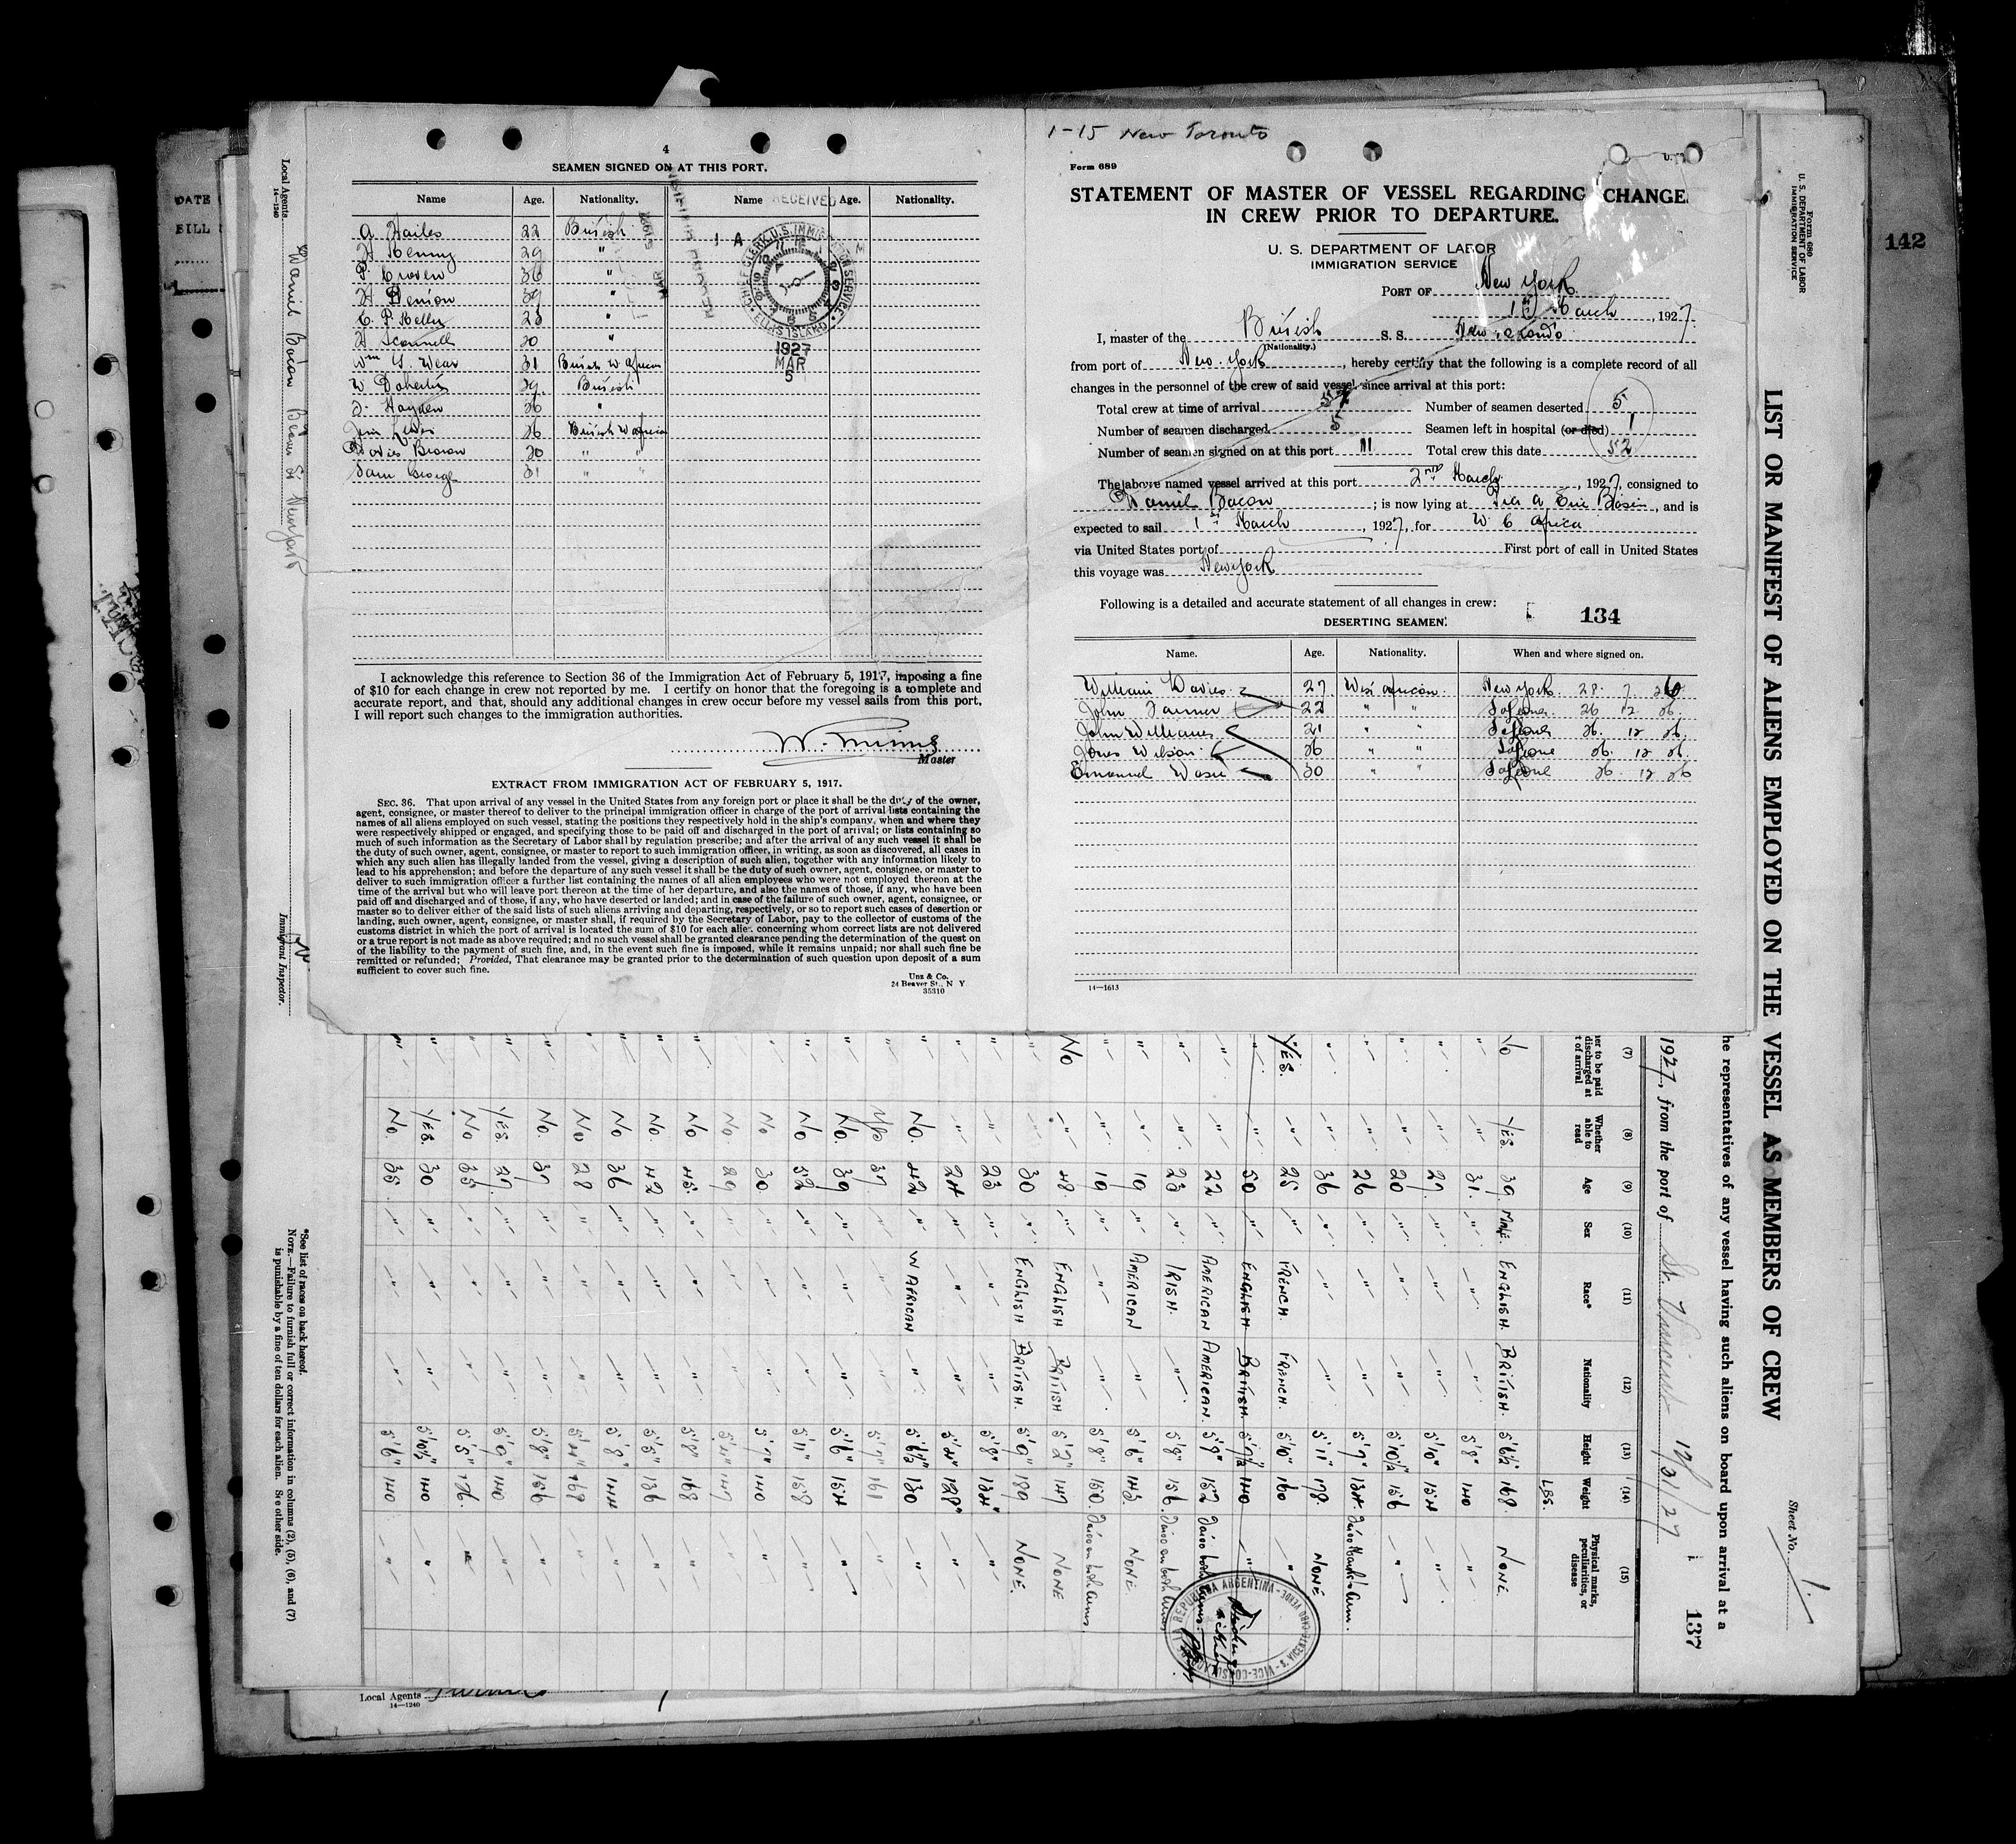 4
SEAMEN SIGNED ON AT THIS PORT.
Name Age. Nationality. Name Age. Nationality.
RECEIVED
A Hailes 22 British
H Kenny 29 "
P. Croven 36 "
H Denion 39 "
C. P. Kelly 23 "
H Scannell 20 "
Wm Y. Wear 31 British W African
W Doherty 29 British
Hayden 26 "
26 British W African
Davies Brown 30 " "
Sam George 31 " "
CHIEF CLERK U.S. IMMIGRATION SERVICE
ELLIS ISLAND
1927
MAR
5
I acknowledge this reference to Section 36 of the Immigration Act of February 5, 1917, imposing a fine
of $10 for each change in crew not reported by me. I certify on honor that the foregoing is a complete and
accurate report, and that, should any additional changes in crew occur before my vessel sails from this port,
I will report such changes to the immigration authorities.
Master
EXTRACT FROM IMMIGRATION ACT OF FEBRUARY 5, 1917.
SEC. 36. That upon arrival of any vessel in the United States from any foreign port or place it shall be the duty of the owner,
agent, consignee, or master thereof to deliver to the principal immigration officer in charge of the port of arrival lists containing the
names of all aliens employed on such vessel, stating the positions they respectively hold in the ship's company, when and where they
were respectively shipped or engaged, and specifying those to be paid off and discharged in the port of arrival; or lists containing so
much of such information as the Secretary of Labor shall by regulation prescribe; and after the arrival of any such vessel it shall be
the duty of such owner, agent, consignee, or master to report to such immigration officer, in writing, as soon as discovered, all cases in
which any such alien has illegally landed from the vessel, giving a description of such alien, together with any information likely to
lead to his apprehension; and before the departure of any such vessel it shall be the duty of such owner, agent, consignee, or master to
deliver to such immigration officer a further list containing the names of all alien employees who were not employed thereon at the
time of the arrival but who will leave port thereon at the time of her departure, and also the names of those, if any, who have been
paid off and discharged and of those, if any, who have deserted or landed; and in case of the failure of such owner, agent, consignee, or
master so to deliver either of the said lists of such aliens arriving and departing, respectively, or so to report such cases of desertion or
landing, such owner, agent, consignee, or master shall, if required by the Secretary of Labor, pay to the collector of customs of the
customs district in which the port of arrival is located the sum of $10 for each alien concerning whom correct lists are not delivered
or a true report is not made as above required; and no such vessel shall be granted clearance pending the determination of the question
of the liability to the payment of such fine, and, in the event such fine is imposed, while it remains unpaid; nor shall such fine be
remitted or refunded; Provided, That clearance may be granted prior to the determination of such question upon deposit of a sum
sufficient to cover such fine.
Unz & Co.
24 Beaver St., N Y
35310
1-15 New Toronto
Form 689
STATEMENT OF MASTER OF VESSEL REGARDING CHANGE
IN CREW PRIOR TO DEPARTURE.
U. S. DEPARTMENT OF LABOR
IMMIGRATION SERVICE
PORT OF New York
1st March, 1927.
I, master of the British S. S. New Toronto
(Nationality.)
from port of New York, hereby certify that the following is a complete record of all
changes in the personnel of the crew of said vessel since arrival at this port:
Total crew at time of arrival 57 Number of seamen deserted 5
Number of seamen discharged 5 Seamen left in hospital (or died) 1
Number of seamen signed on at this port 11 Total crew this date 52
The above named vessel arrived at this port 2nd March, 1927, consigned to
Daniel Bacon; is now lying at Pier A Erie Basin, and is
expected to sail 1st March, 1927, for W C Africa
via United States port of First port of call in United States
this voyage was New York
Following is a detailed and accurate statement of all changes in crew:
134
DESERTING SEAMEN.
Name. Age. Nationality. When and where signed on.
William Davies 27 West African New York 28. 7. 26
John Farmer 22 " " 26 12 26.
John Williams 21 " " 26. 12 26.
Jones Wilson 26 " " 26. 12 26.
Emanuel 30 " " 26 12 26
14—1613
142
DATE
BILL
Local Agents
14—1240
Daniel Bacon
Immigrant Inspector.
Form 689
U. S. DEPARTMENT OF LABOR
IMMIGRATION SERVICE
LIST OR MANIFEST OF ALIENS EMPLOYED ON THE VESSEL AS MEMBERS OF CREW
Sheet No. 1.
he representatives of any vessel having such aliens on board upon arrival at a
137
1927, from the port of St. Vincent
(7) (8) (9) (10) (11) (12) (13) (14) (15)
Whether able to read Age Sex Race* Nationality Height Weight Physical marks, peculiarities, or disease
LBS.
YES. 39 MALE. ENGLISH. BRITISH. 5'6½" 168. NONE.
" 31. " " " 5'8" 140 "
" 27. " " " 5'10" 154 "
" 20 " " " 5'10½" 156 "
" 26 " " " 5'7" 134.
" 36 " " " 5'11" 178. NONE
YES. " 25 " FRENCH. FRENCH. 5'10" 160 "
" " 50 " ENGLISH. BRITISH. 5'7½" 140 "
" " 22 " AMERICAN AMERICAN. 5'9" 152
" " 23 " IRISH. " 5'8" 156.
" " 19 " AMERICAN " 5'6" 143. NONE
" " 19 " " " 5'8" 150.
NO " 48 " ENGLISH BRITISH 5'2" 147 NONE
" " 30 " ENGLISH BRITISH. 5'9" 189 NONE.
" " 23 " " " 5'8" 134 "
" " 24 " " " 5'4" 128 "
" NO. 42 " W AFRICAN " 5'6½" 130 "
" 37 " " " 5'7" 161 "
" NO. 39 " " " 5'6" 154 "
" NO 52 " " " 5'11" 158 "
" NO 30 " " " 5'7" 140 "
" NO. 29 " " " 147 "
" NO 45. " " " 5'8" 168 "
" NO. 42 " " " 5'5" 136 "
" NO 36 " " " 5'8" 144 "
" NO 28 " " " 168 "
" NO. 37 " " " 5'8" 156 "
" YES. 27. " " " 5'9" 140 "
" NO 35 " " " 5'5" 126. "
" YES. 30 " " " 5'10½" 140 "
" NO. 35. " " " 5'6" 140 "
REPUBLICA ARGENTINA
VICE-CONSULADO
S. VICENTE CABO VERDE
*See list of races on back hereof.
NOTE.—Failure to furnish full or correct information in columns (2), (5), (6), and (7)
is punishable by a fine of ten dollars for each alien. See other side.
Local Agents
14—1240